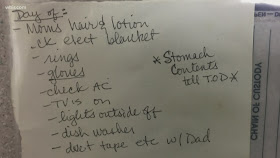 Day of:
- Moms hair & lotion
- ck elect blanket
- rings
- gloves
- check AC
- TV is on
- lights outside off
- dish washer
- duct tape etc w/ Dad
* Stomach
Contents
tell TOD *
CHAIN OF CUSTODY